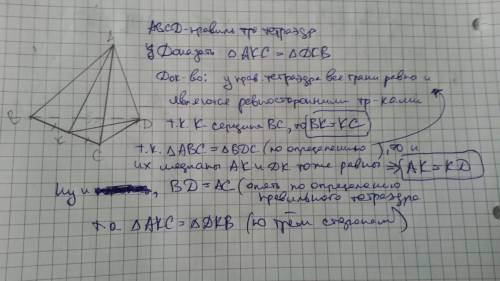 ABCD-правильн тр тетраэдр
Доказать △AKC = △DKB
Док-во: у прав тетраэдра все грани равно и
является равносторонним тр-ками
т.к. K середине BC, то BK=KC
т.к. △ABC = △BDC (по определению), то и
их медианы AK и DK тоже равны ⇒ AK=KD
Ну и , BD = AC (опять по определению
правильного тетраэдра
т.о. △AKC = △DKB (по трём сторонам)
B
D
K
C